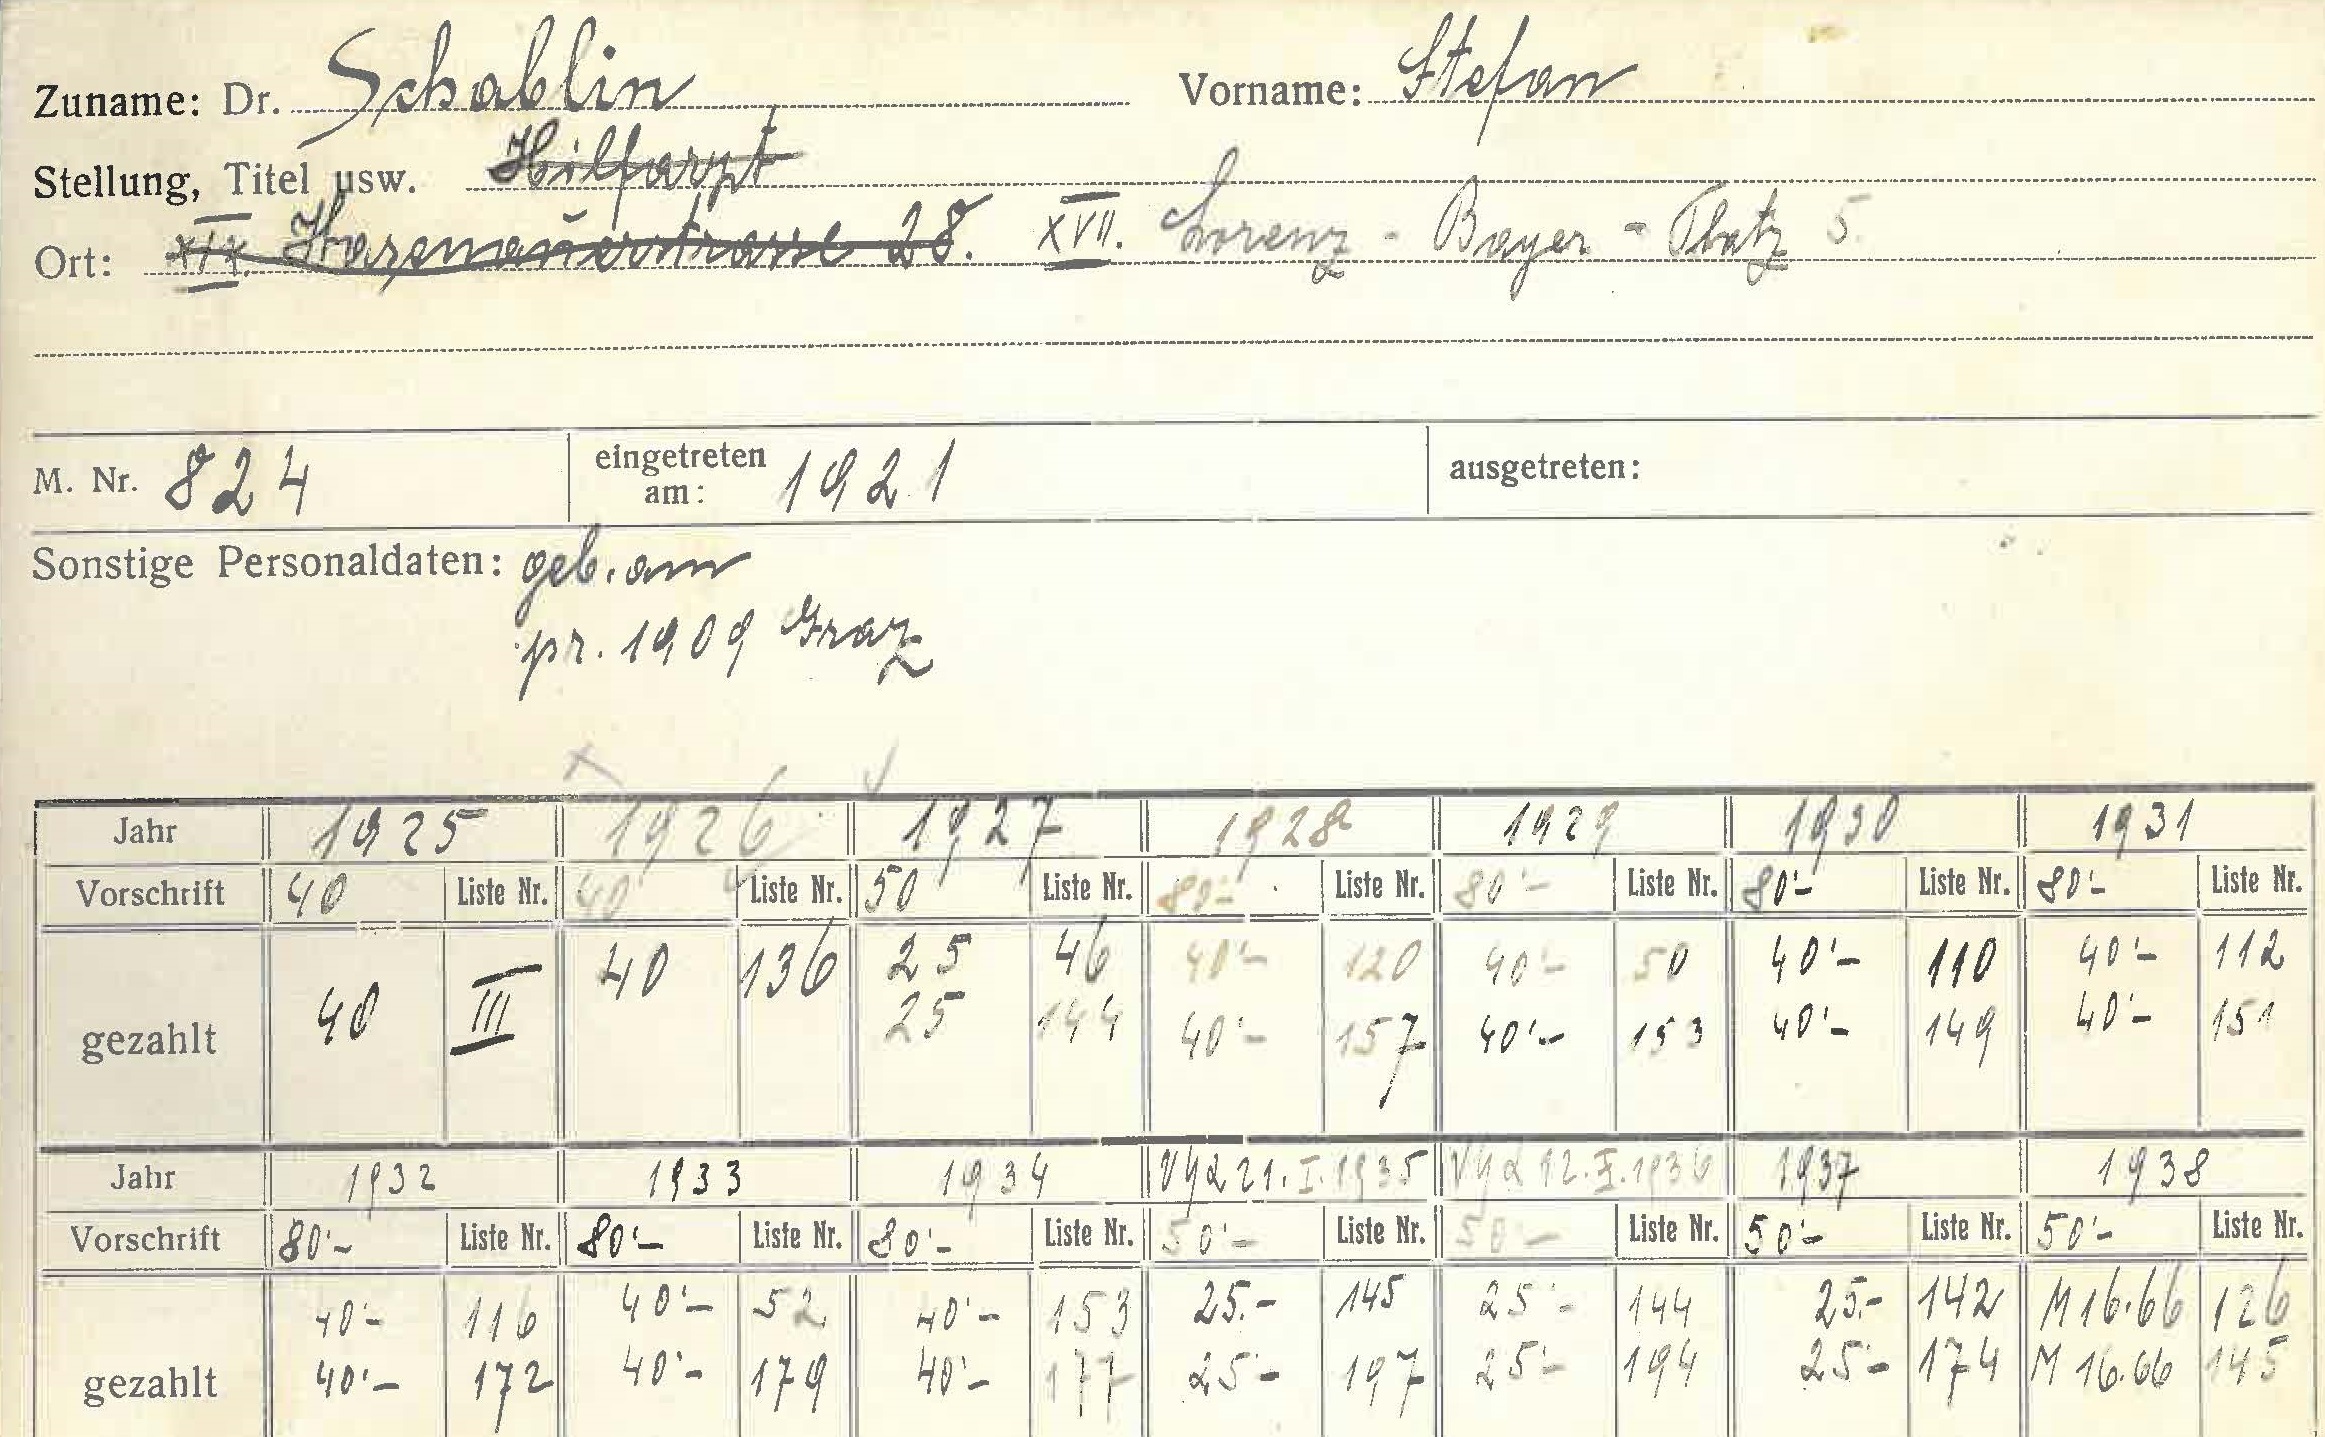 Zuname: Dr. Schablin Vorname: Stefan
Stellung, Titel usw. Hilfarzt
Ort: XIX. Hasenauerstrasse 28. XVII. Lorenz-Bayer-Platz 5.
M. Nr. 824 eingetreten am: 1921 ausgetreten:
Sonstige Personaldaten: geb. am
pr. 1909 Graz
Jahr 1925 1926 1927 1928 1929 1930 1931
Vorschrift 40 Liste Nr. 40 Liste Nr. 50 Liste Nr. 80'- Liste Nr. 80'- Liste Nr. 80'- Liste Nr. 80'- Liste Nr.
gezahlt 40 III 40 136 25 46 40'- 120 40'- 50 40'- 110 40'- 112
25 144 40'- 157 40'- 153 40'- 149 40'- 151
Jahr 1932 1933 1934 21. I. 1935 12. 1936 1937 1938
Vorschrift 80'- Liste Nr. 80'- Liste Nr. 80'- Liste Nr. 50'- Liste Nr. 50'- Liste Nr. 50'- Liste Nr. 50'- Liste Nr.
gezahlt 40'- 116 40'- 52 40'- 153 25.- 145 25'- 144 25.- 142 M 16.66 126
40'- 172 40'- 179 40'- 177 25'- 197 25'- 194 25'- 174 M 16.66 145